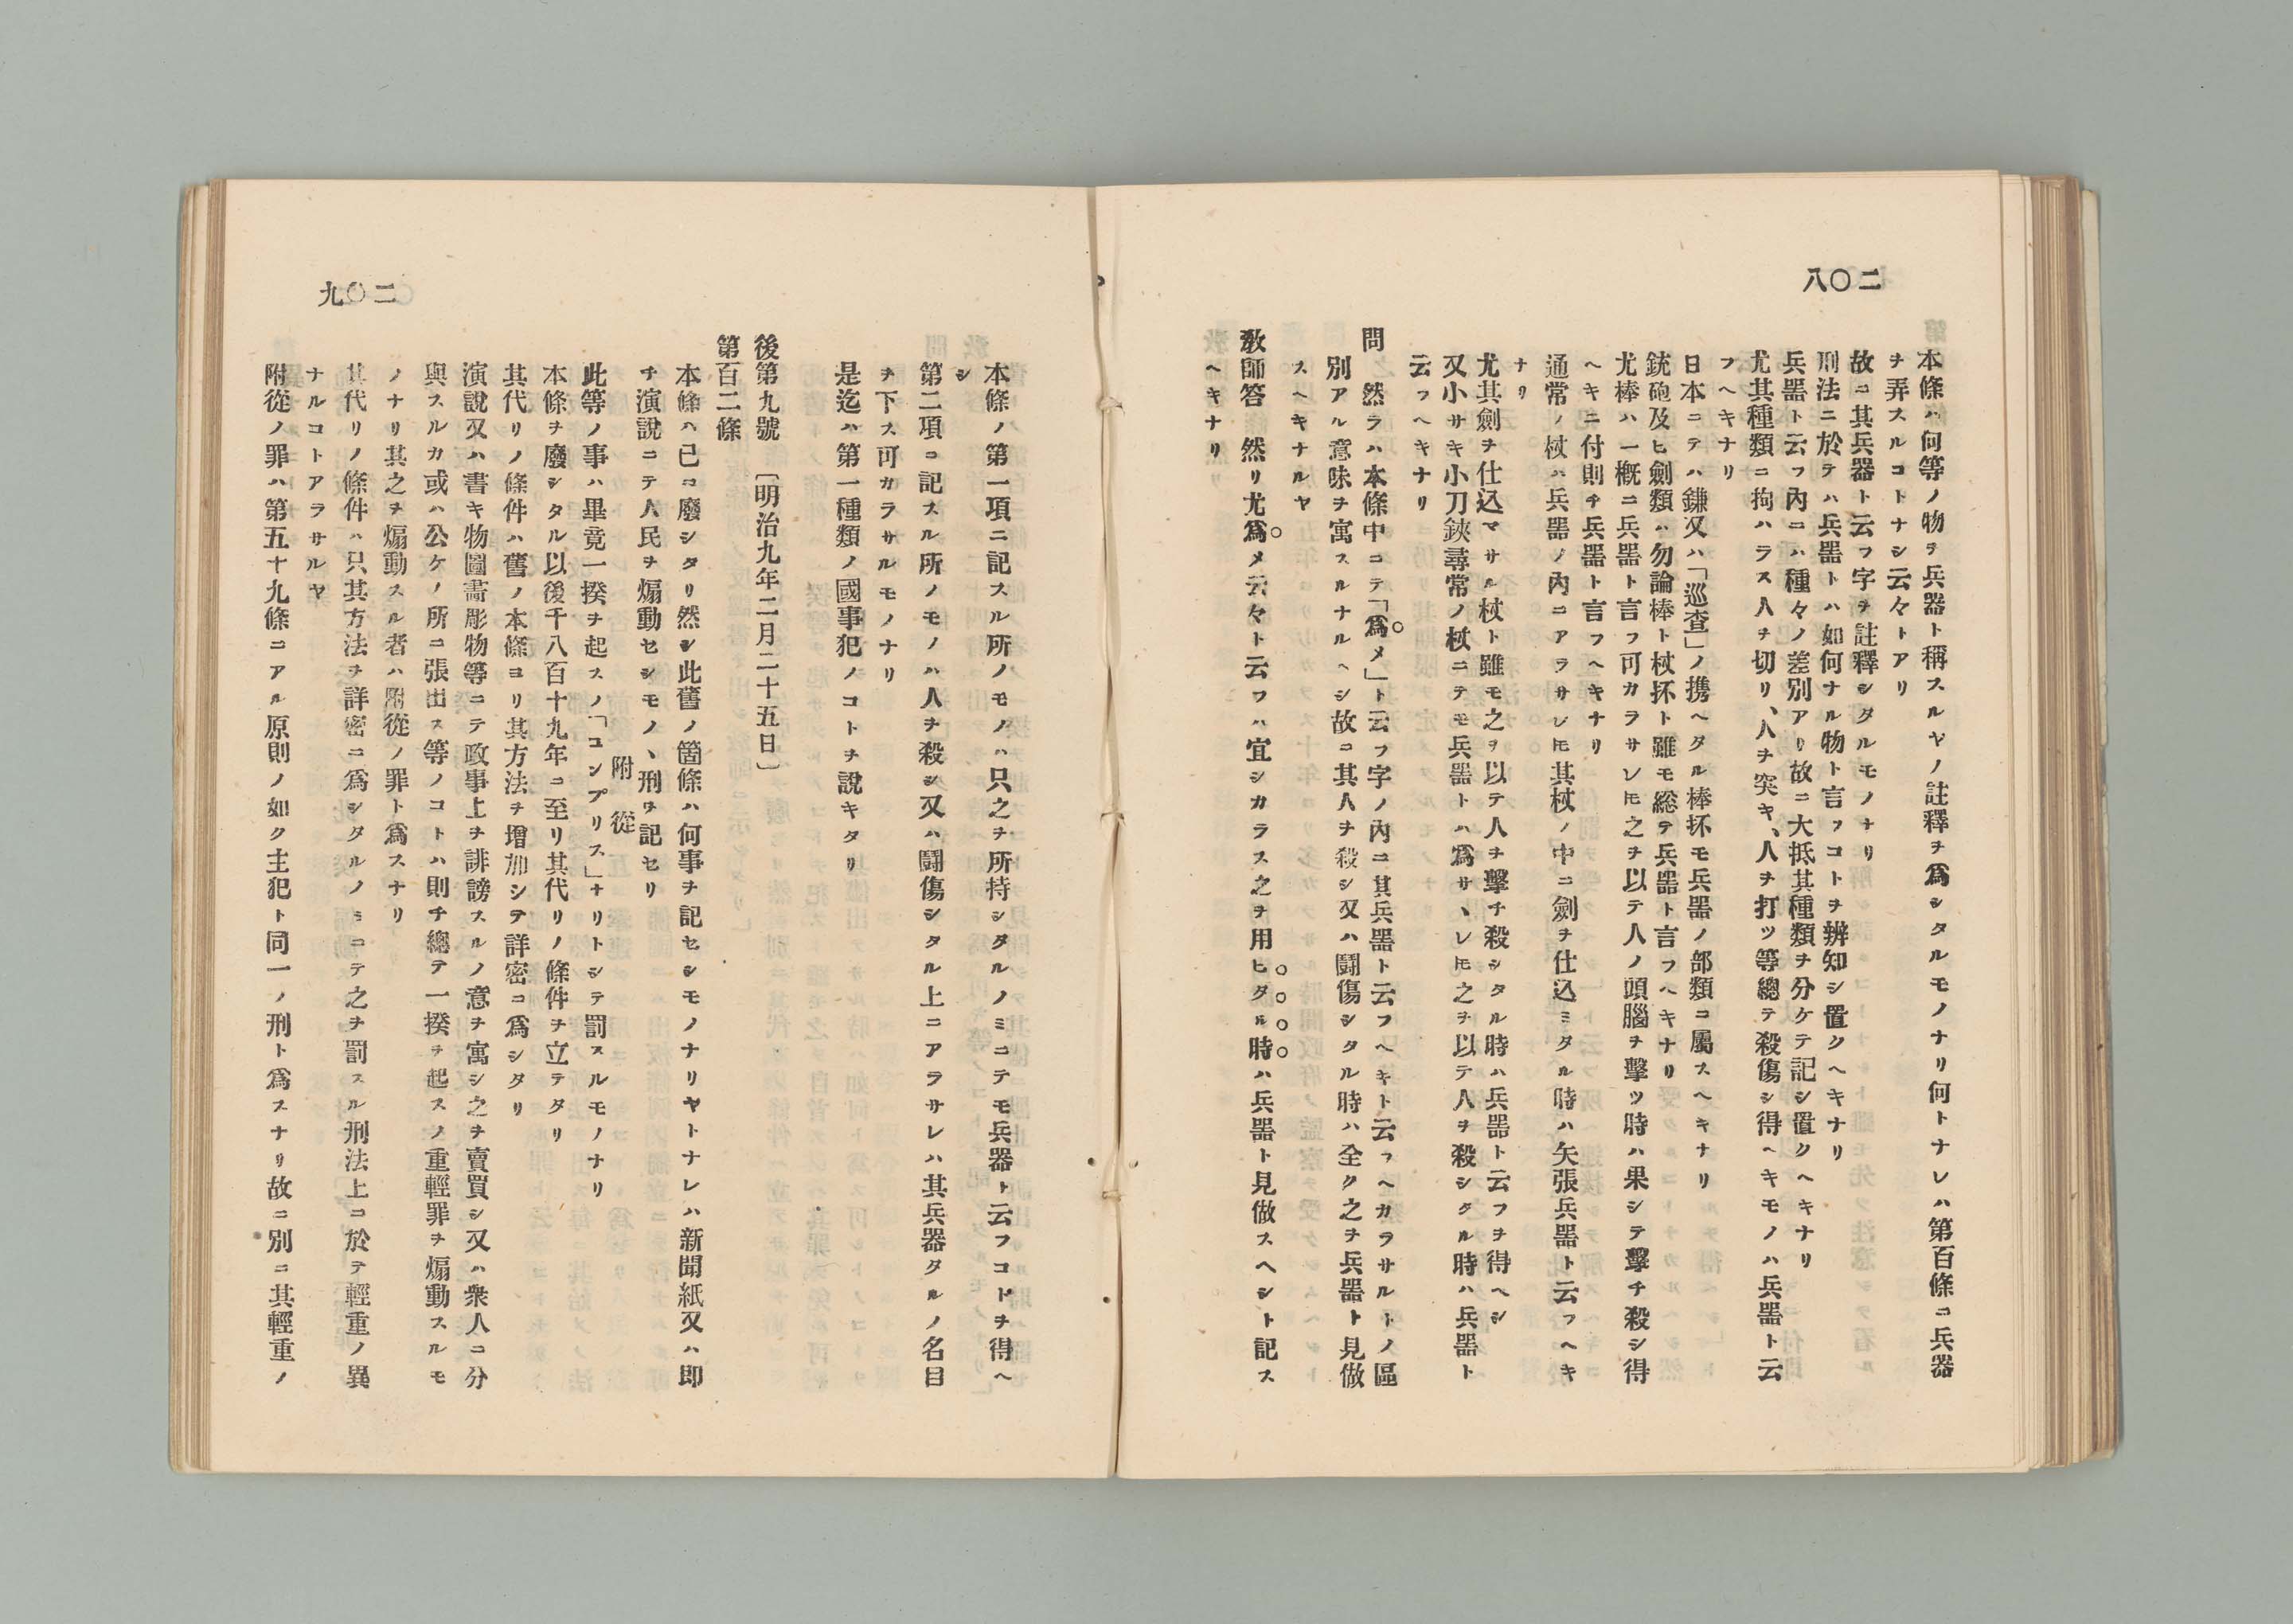 二〇八
本條ハ何等ノ物ヲ兵器ト稱スルヤノ註釋ヲ爲シタルモノナリ何トナレハ第百條ニ兵器
ヲ弄スルコトナシ云々トアリ
故ニ其兵器ト云フ字ヲ註釋シタルモノナリ
刑法ニ於テハ兵器トハ如何ナル物ト言フコトヲ辨知シ置クヘキナリ
兵器ト云フ內ニハ種々ノ差別アリ故ニ大抵其種類ヲ分ケテ記シ置クヘキナリ
尤其種類ニ拘ハラス人ヲ切リ、人ヲ突キ、人ヲ打ツ等總テ殺傷シ得ヘキモノハ兵器ト云
フヘキナリ
日本ニテハ鎌又ハ「巡査」ノ携ヘタル棒抔モ兵器ノ部類ニ屬スヘキナリ
銃砲及ヒ劍類ハ勿論棒ト杖抔ト雖モ総テ兵器ト言フヘキナリ
尤棒ハ一概ニ兵器ト言フ可カラサレ𪜈之ヲ以テ人ノ頭腦ヲ擊ツ時ハ果シテ擊チ殺シ得
ヘキニ付則チ兵器ト言フヘキナリ
通常ノ杖ハ兵器ノ內ニアラサレ𪜈其杖ノ中ニ劍ヲ仕込ミタル時ハ矢張兵器ト云フヘキ
ナリ
尤其劍ヲ仕込マサル杖ト雖モ之ヲ以テ人ヲ擊チ殺シタル時ハ兵器ト云フヲ得ヘシ
又小サキ小刀鋏尋常ノ杖ニテモ兵器トハ爲サヽレ𪜈之ヲ以テ人ヲ殺シタル時ハ兵器ト
云フヘキナリ
問　然ラハ本條中ニテ「爲メ」ト云フ字ノ內ニ其兵器ト云フヘキト云フヘカラサルトノ區
別アル意味ヲ寓スルナルヘシ故ニ其人ヲ殺シ又ハ鬪傷シタル時ハ全ク之ヲ兵器ト見做
スヘキナルヤ
敎師答　然リ尤爲メ云々ト云フハ宜シカラス之ヲ用ヒタル時ハ兵器ト見做スヘシト記ス
ヘキナリ
二〇九
本條ノ第一項ニ記スル所ノモノハ只之ヲ所持シタルノミニテモ兵器ト云フコトヲ得ヘ
シ
第二項ニ記スル所ノモノハ人ヲ殺シ又ハ鬪傷シタル上ニアラサレハ其兵器タルノ名目
ヲ下ス可カラサルモノナリ
是迄ハ第一種類ノ國事犯ノコトヲ說キタリ
後第九號　〔明治九年二月二十五日〕
第百二條
本條ハ已ニ廢シタリ然シ此舊ノ箇條ハ何事ヲ記セシモノナリヤトナレハ新聞紙又ハ即
チ演說ニテ人民ヲ煽動セシモノヽ刑ヲ記セリ
附從
此等ノ事ハ畢竟一揆ヲ起スノ「コンプリス」ナリトシテ罰スルモノナリ
本條ヲ廢シタル以後千八百十九年ニ至リ其代リノ條件ヲ立テタリ
其代リノ條件ハ舊ノ本條ヨリ其方法ヲ增加シテ詳密ニ爲シタリ
演說又ハ書キ物圖畵彫物等ニテ政事上ヲ誹謗スルノ意ヲ寓シ之ヲ賣買シ又ハ衆人ニ分
與スルカ或ハ公ケノ所ニ張出ス等ノコトハ則チ總テ一揆ヲ起スノ重輕罪ヲ煽動スルモ
ノナリ其之ヲ煽動スル者ハ附從ノ罪ト爲スナリ
其代リノ條件ハ只其方法ヲ詳密ニ爲シタルノミニテ之ヲ罰スル刑法上ニ於テ輕重ノ異
ナルコトアラサルヤ
附從ノ罪ハ第五十九條ニアル原則ノ如ク主犯ト同一ノ刑ト爲スナリ故ニ別ニ其輕重ノ